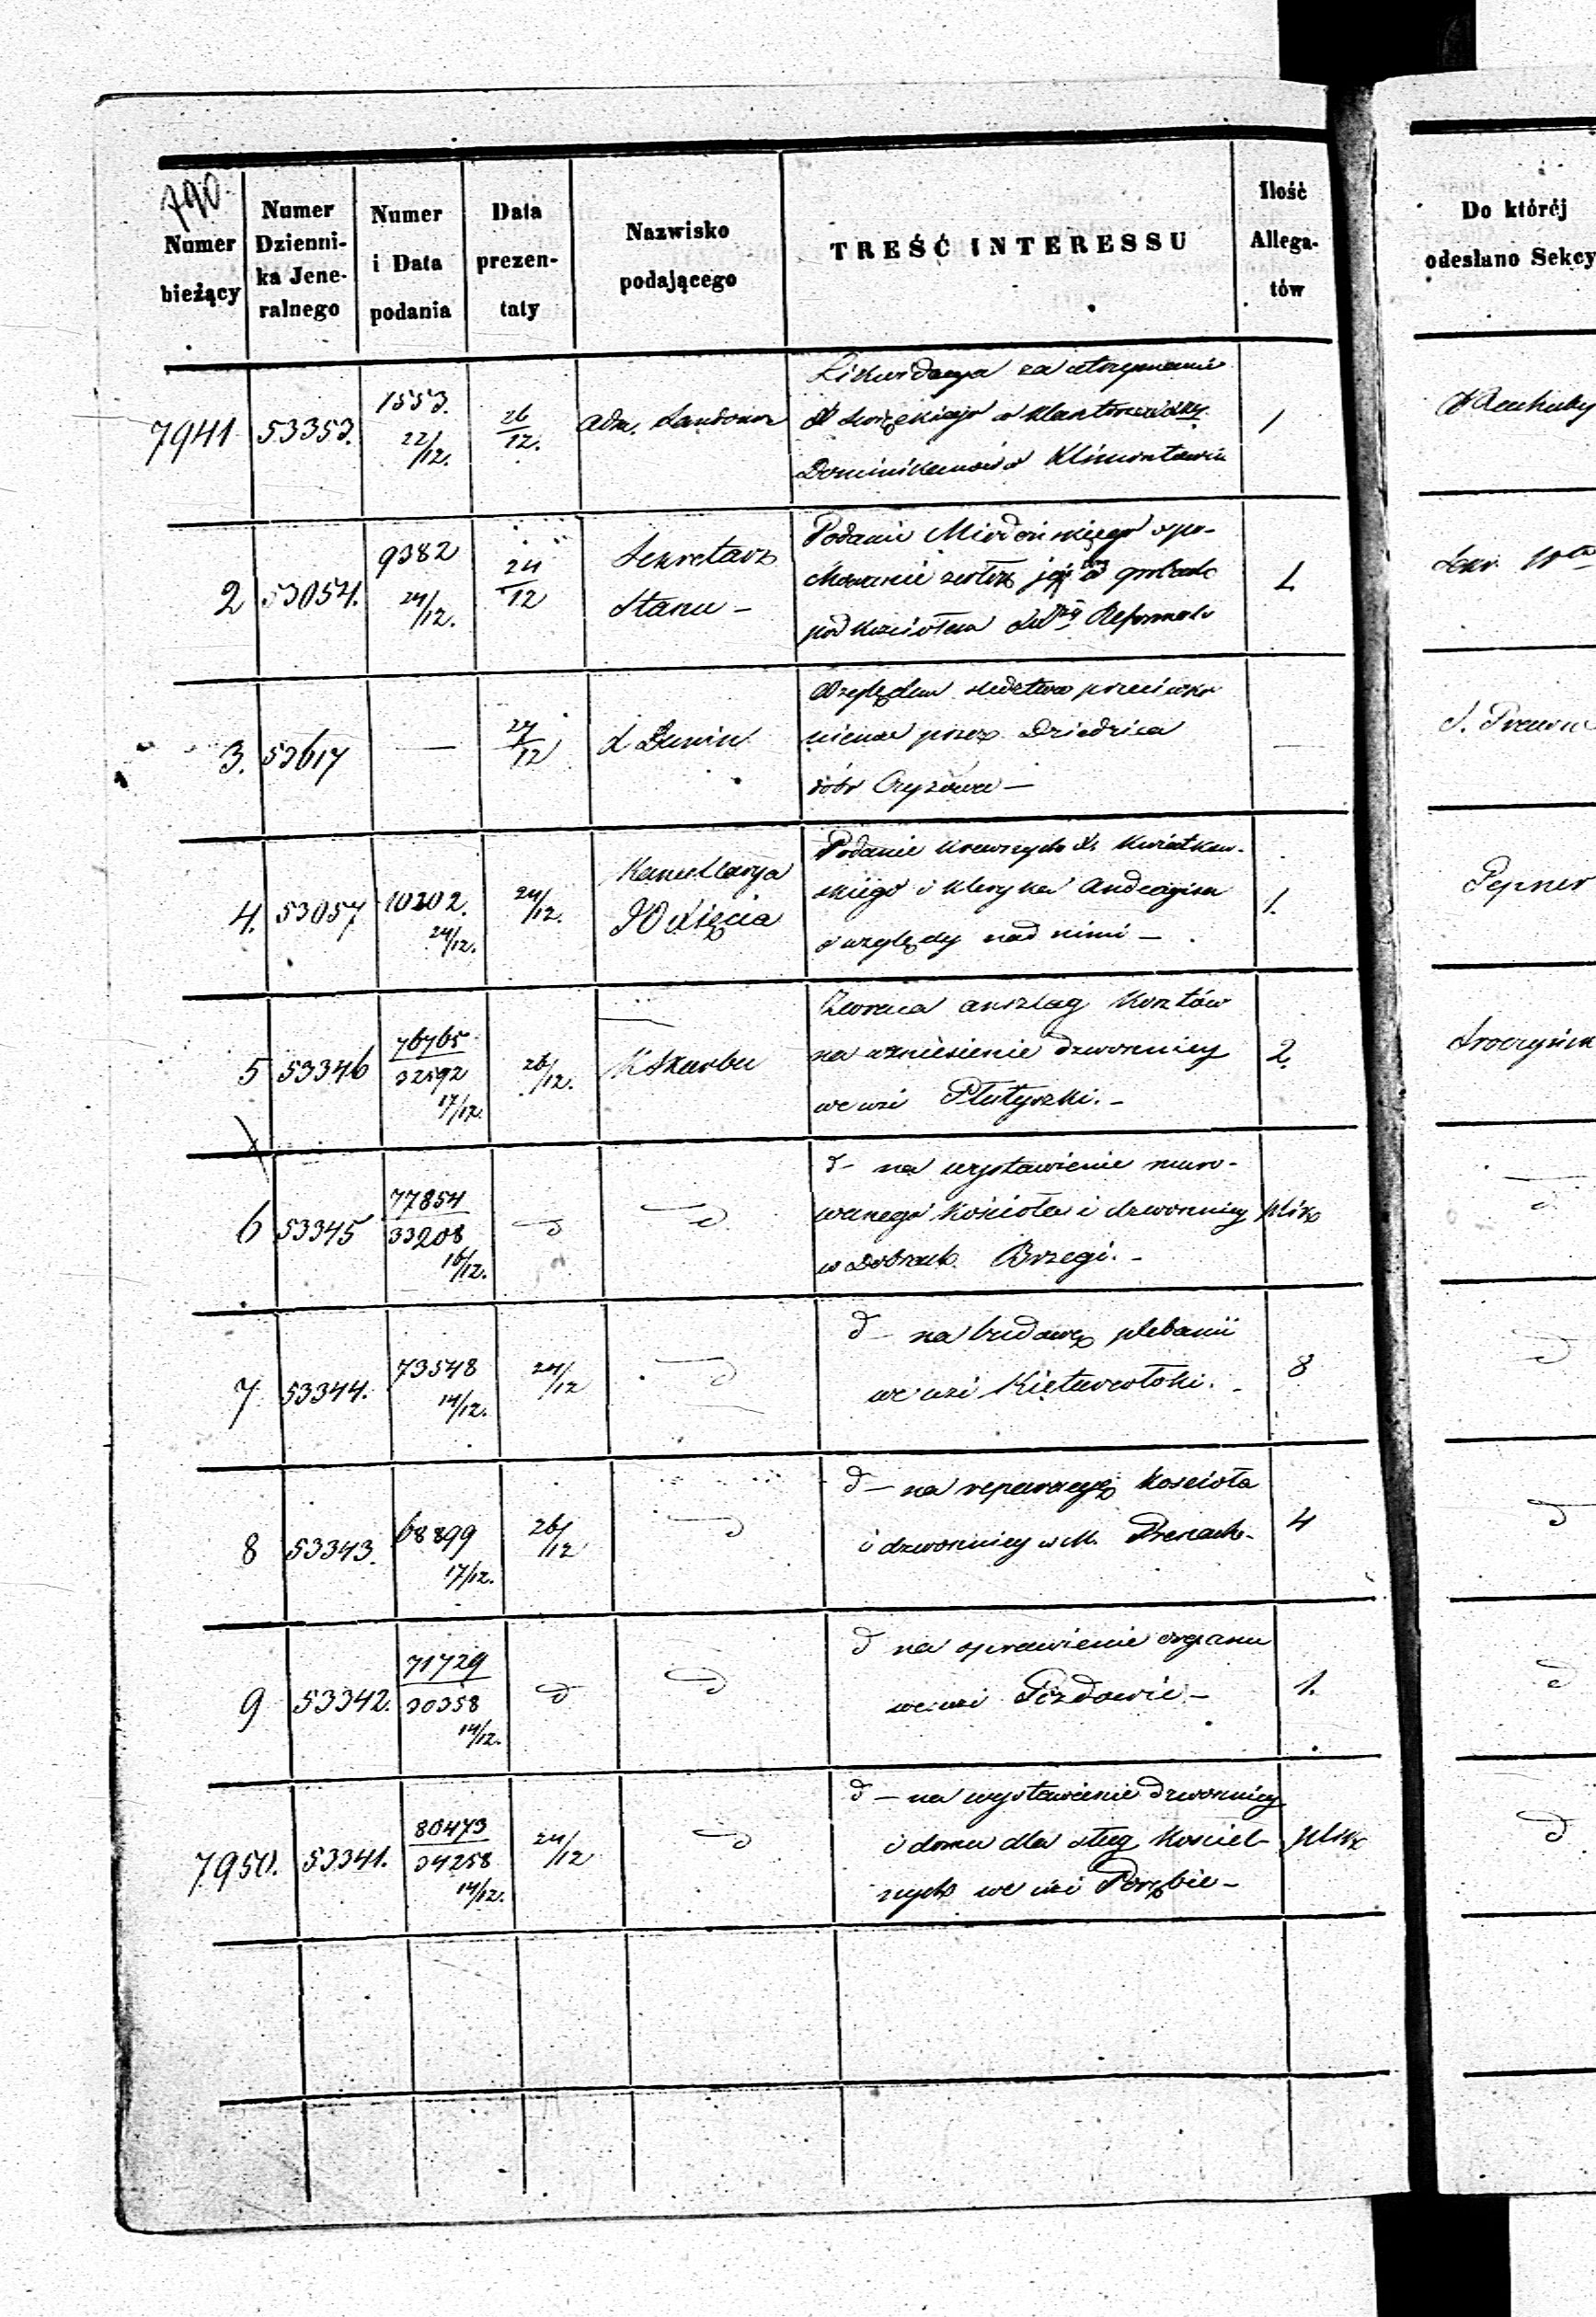 790.
Numer bieżący
Numer Dzienni-
ka Jene-
ralnego
Numer
i Data
podania
Data
prezen-
taty
Nazwisko
podającego
TREŚĆ INTERESSU
Ilość
Allega-
tów
Do któréj
odesłano Sekcy
7941 53353. 1553. 22/12. 26/12. Adm. Sandomr
Likwidacya za utrzymanie
X. w klasztorze XX.
Dominikanów w Klimontowie
1
2 53054. 9382 24/12. 24/12
Sekretarz
Stanu –
Podanie o po-
chowanie zwłok jej w grobach
pod kościołem Reformatów
1
3. 53617 — 27/12 X Dunin
Względem śledztwa przeciwko
niemu przez Dziedzica
dóbr —
—
4. 53057 10202. 24/12. 24/12.
Kancellarya
JO Xięcia
Podanie krewnych X. Kwiatkow-
skiego i kleryka
o względy nad nimi –
1.
Pepner
5 53346 76765/32592 17/12. 26/12. K Skarbu
Zwraca anszlag kosztów
na wzniesienie dzwonnicy
we wsi Plutyszki. –
2.
6 53345 77854/33208 16/12. d d
d – na wystawienie muro-
wanego kościoła i dzwonnicy
w Dobrach Brzegi. –
plik
d
7 53344. 73548 14/12. 24/12 d
d – na budowę plebanii
we wsi Kietawłoki. –
8
d
8 53343. 68899 17/12. 26/12 d
d – na reparacyę kościoła
i dzwonnicy w M. Prenach –
4
d
9 53342. 71729/30358 14/12. d d
d na sprawienie organu
we wsi Pozdowie –
1.
d
7950. 53341. 80473/34258 14/12. 24/12 d
d – na wystawienie dzwonnicy
i domu dla sług kościel-
nych we wsi Porębie –
plik
d